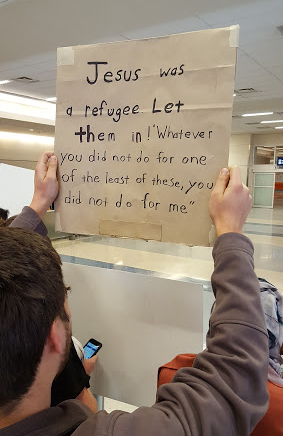 Jesus was
a refugee. Let
them in! "Whatever
you did not do for one
of the least of these, you
did not do for me"